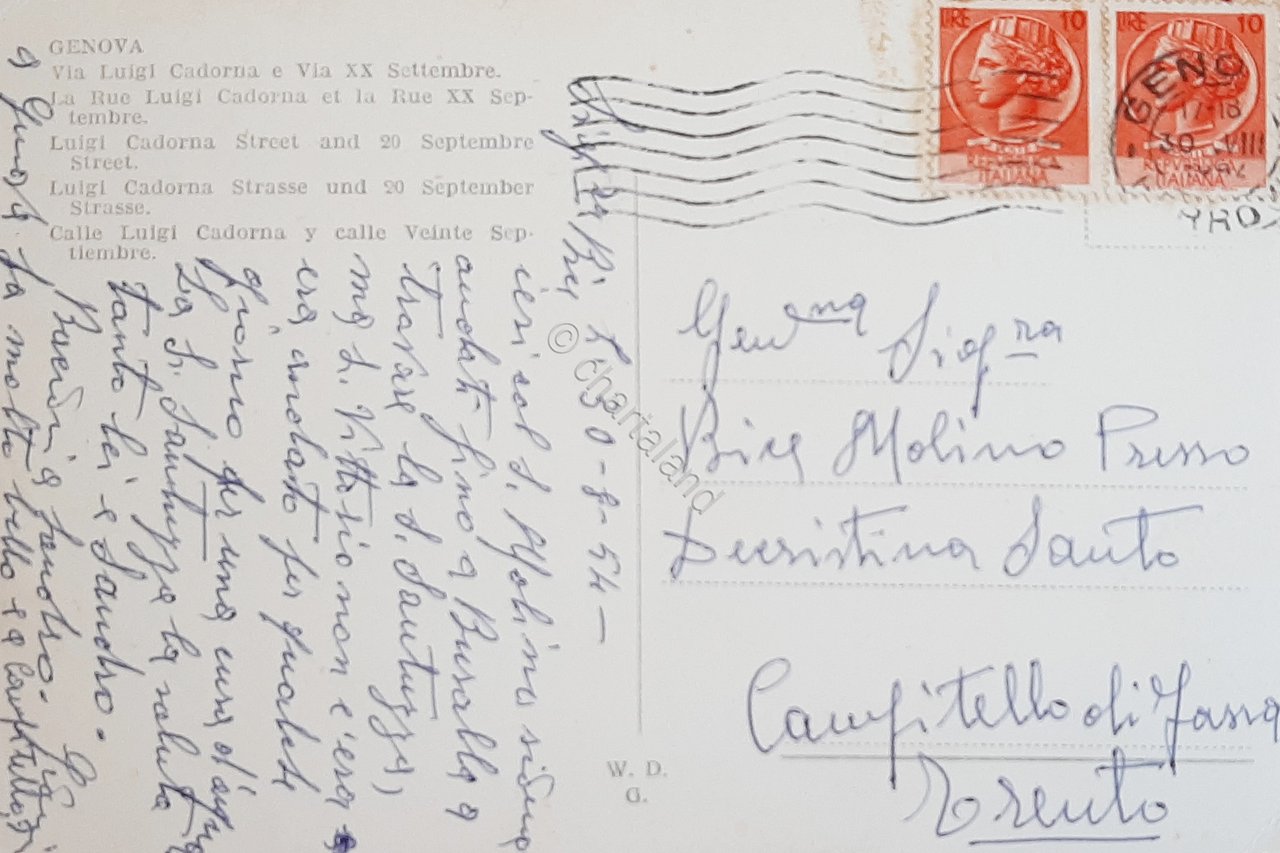 GENOVA
Via Luigi Cadorna e Via XX Settembre.
La Rue Luigi Cadorna et la Rue XX Sep-
tembre.
Luigi Cadorna Street and 20 Septembre
Street.
Luigi Cadorna Strasse und 20 September
Strasse.
Calle Luigi Cadorna y calle Veinte Sep-
tiembre.
LIRE 10
REPUBBLICA
ITALIANA
LIRE 10
REPUBBLICA
ITALIANA
GENO
17-18
30 VIII
30-8-54-
ieri col S. Molino siamo
andati fino a Busalla a
trovare la S. Santuzza,
ma S. Vittorio non c'era
era andato per qualche
giorno per una cura d'acqua
La S. Santuzza la saluta
tanto lei e Sandro.
Bacioni a Sandro.
a Genova fa molto bello e a Campitello?
Gen.ma Sig.ra
Bice Molino Presso
Decristina Santo
Campitello di Fassa
Trento
W. D.
G.
© chartaland